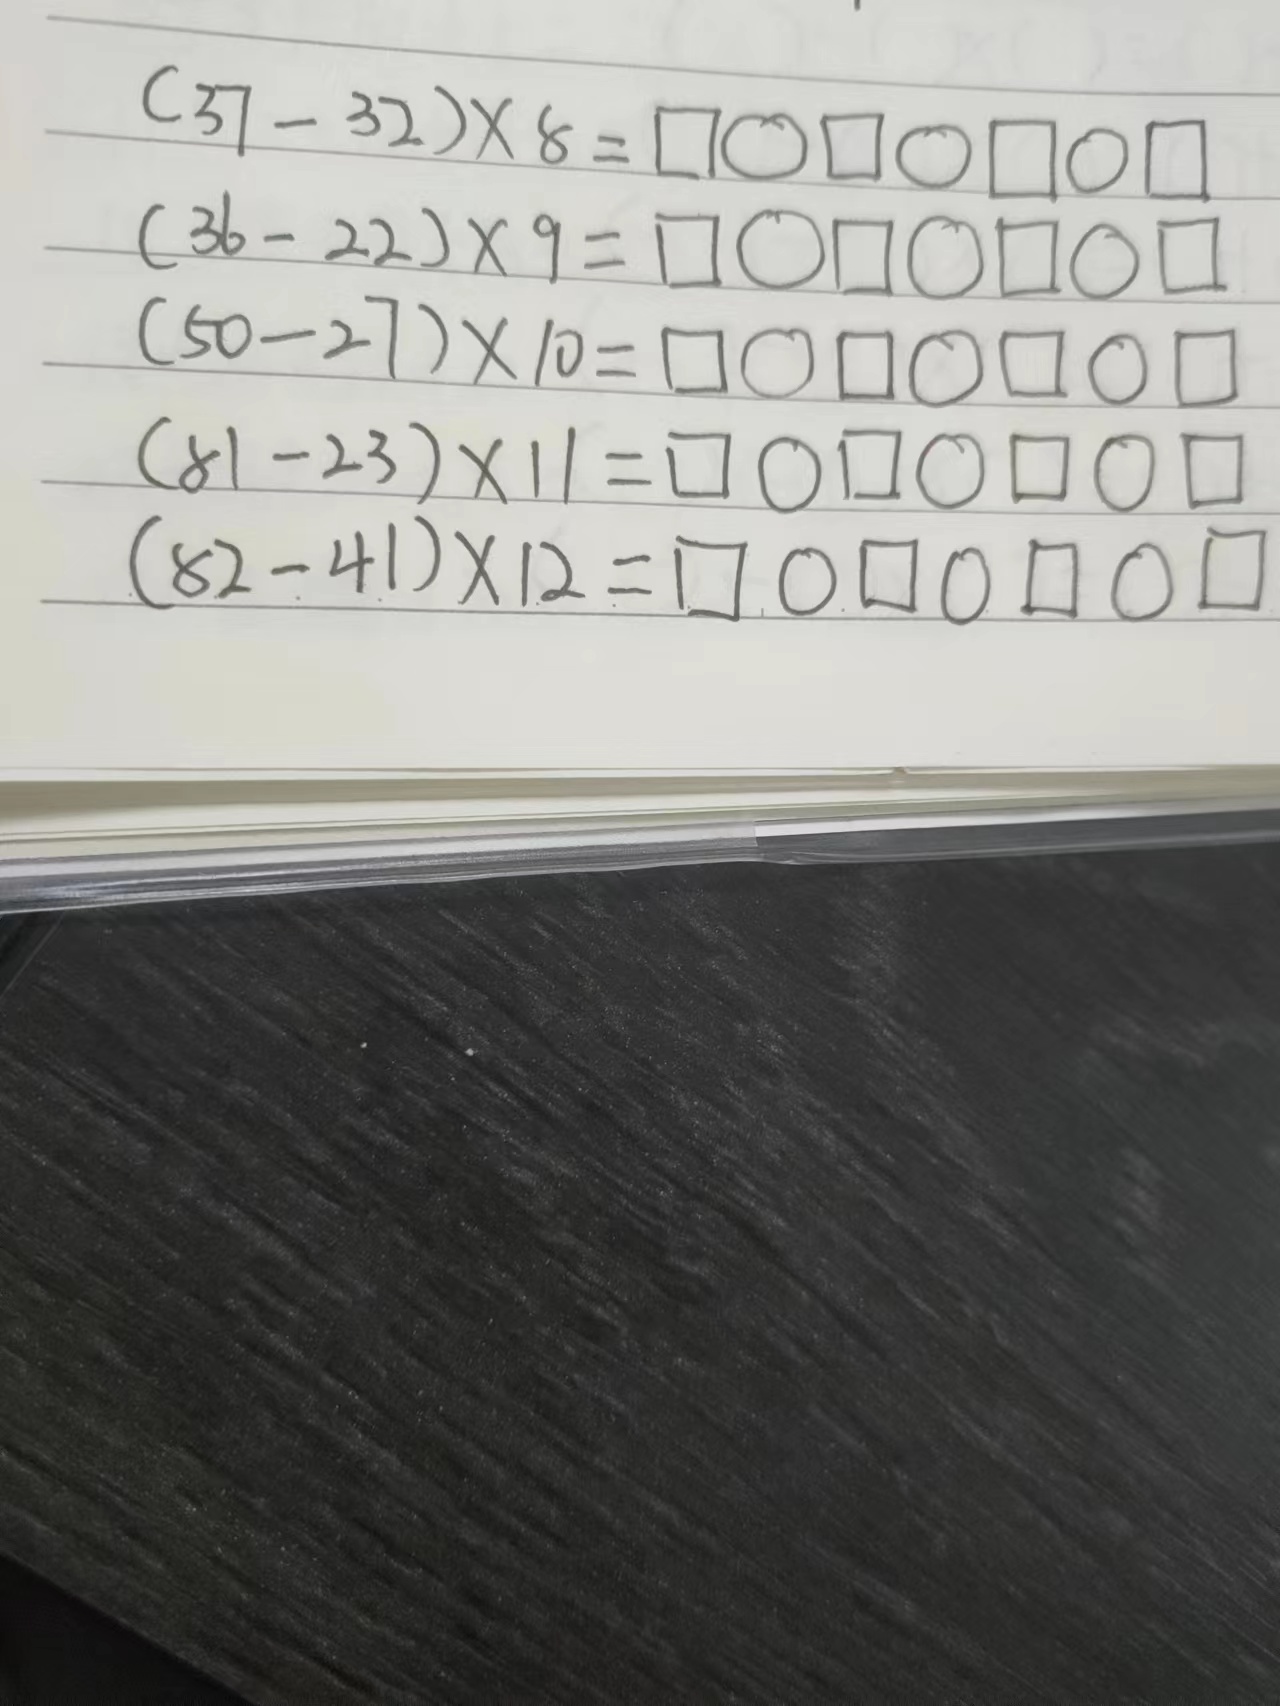 (37-32)×8=□○□○□○□
(36-22)×9=□○□○□○□
(50-27)×10=□○□○□○□
(81-23)×11=□○□○□○□
(82-41)×12=□○□○□○□